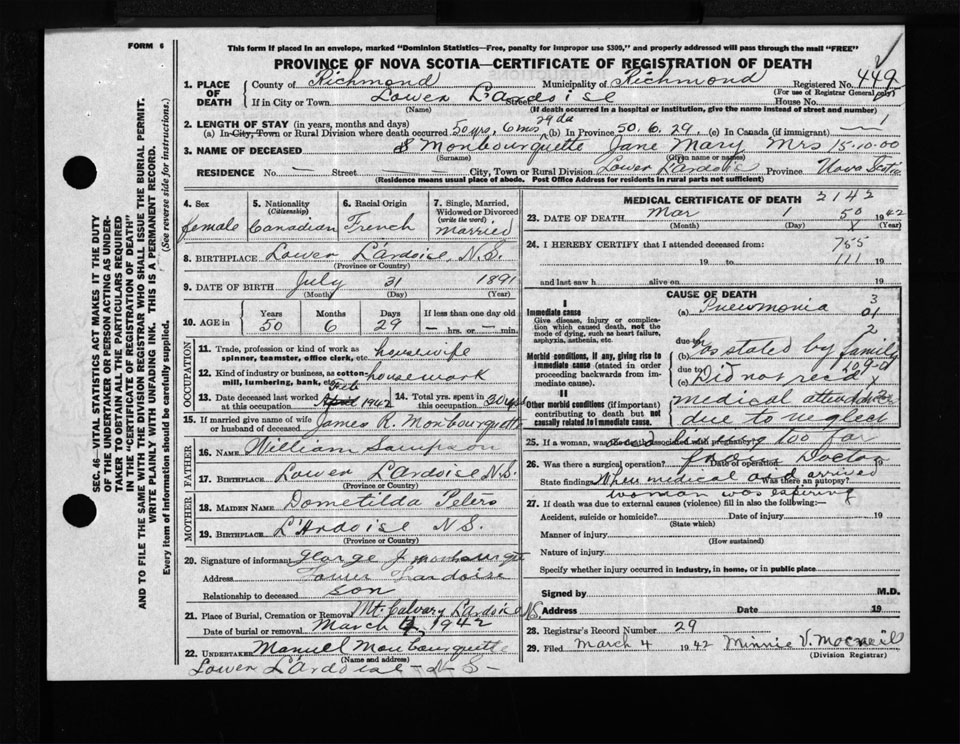 FORM 6
This form if placed in an envelope, marked "Dominion Statistics—Free, penalty for improper use $300," and properly addressed will pass through the mail "FREE"
PROVINCE OF NOVA SCOTIA—CERTIFICATE OF REGISTRATION OF DEATH
1. PLACE OF DEATH County of Richmond Municipality of Richmond Registered No. 449
(For use of Registrar General only)
If in City or Town Lower L'Ardoise Street House No.
(Name) (If death occurred in a hospital or institution, give the name instead of street and number)
2. LENGTH OF STAY (in years, months and days)
(a) In City, Town or Rural Division where death occurred 50 yrs, 6 mos 29 da (b) In Province 50. 6. 29. (c) In Canada (if immigrant) 1
3. NAME OF DECEASED Monbourquette Jane Mary Mrs 15-10-00
(Surname) (Given name or names)
RESIDENCE No. — Street — City, Town or Rural Division Lower L'Ardoise Province Nova Scotia
(Residence means usual place of abode. Post Office Address for residents in rural parts not sufficient)
4. Sex female
5. Nationality (Citizenship) Canadian
6. Racial Origin French
7. Single, Married, Widowed or Divorced (write the word) married
8. BIRTHPLACE Lower L'Ardoise, N.S.
(Province or Country)
9. DATE OF BIRTH July 31 1891
(Month) (Day) (Year)
10. AGE in Years 50 Months 6 Days 29 If less than one day — hrs. or — min.
OCCUPATION
11. Trade, profession or kind of work as spinner, teamster, office clerk, etc. housewife
12. Kind of industry or business, as cotton-mill, lumbering, bank, etc. housework
13. Date deceased last worked at this occupation Feb 1942
14. Total yrs. spent in this occupation 30 yrs
15. If married give name of wife or husband of deceased James R. Monbourquette
FATHER
16. Name William Sampson
17. Birthplace Lower L'Ardoise N.S.
(Province or Country)
MOTHER
18. MAIDEN NAME Dometilda Peters
19. BIRTHPLACE L'Ardoise N.S.
(Province or Country)
20. Signature of informant George J Monbourquette
Address Lower L'ardoise
Relationship to deceased son
21. Place of Burial, Cremation or Removal Mt. Calvary L'Ardoise N.S.
Date of burial or removal March 4, 1942
22. UNDERTAKER Manuel Monbourquette
(Name and address)
Lower L'Ardoise - N - S -
MEDICAL CERTIFICATE OF DEATH 2142
23. DATE OF DEATH Mar 1 50 1942
(Month) (Day) (Year)
24. I HEREBY CERTIFY that I attended deceased from: 755
19 to 111 19
and last saw h alive on 19
CAUSE OF DEATH
I
Immediate cause
Give disease, injury or complication which caused death, not the mode of dying, such as heart failure, asphyxia, asthenia, etc.
(a) Pneumonia 3 01 2
due to
Morbid conditions, if any, giving rise to immediate cause (stated in order proceeding backwards from immediate cause).
(b) as stated by family
due to 209-a
(c) Did not rec'd
II
Other morbid conditions (if important) contributing to death but not causally related to immediate cause.
medical attendance
due to neglect
25. If a woman, was death associated with pregnancy?
and living too far
26. Was there a surgical operation? Date of operation 19
from Doctor
State findings Was there an autopsy?
When medical aid arrived
woman was expiring
27. If death was due to external causes (violence) fill in also the following:—
Accident, suicide or homicide? Date of injury 19
(State which)
Manner of injury
(How sustained)
Nature of injury
Specify whether injury occurred in industry, in home, or in public place
Signed by M.D.
Address Date 19
28. Registrar's Record Number 29
29. Filed March 4 1942 Minnie V. MacNeil
(Division Registrar)
SEC. 46—VITAL STATISTICS ACT MAKES IT THE DUTY
OF THE UNDERTAKER OR PERSON ACTING AS UNDER-
TAKER TO OBTAIN ALL THE PARTICULARS REQUIRED
IN THE "CERTIFICATE OF REGISTRATION OF DEATH"
AND TO FILE THE SAME WITH THE DIVISION REGISTRAR WHO SHALL ISSUE THE BURIAL PERMIT.
WRITE PLAINLY WITH UNFADING INK. THIS IS A PERMANENT RECORD.
Every item of information should be carefully supplied. (See reverse side for instructions.)